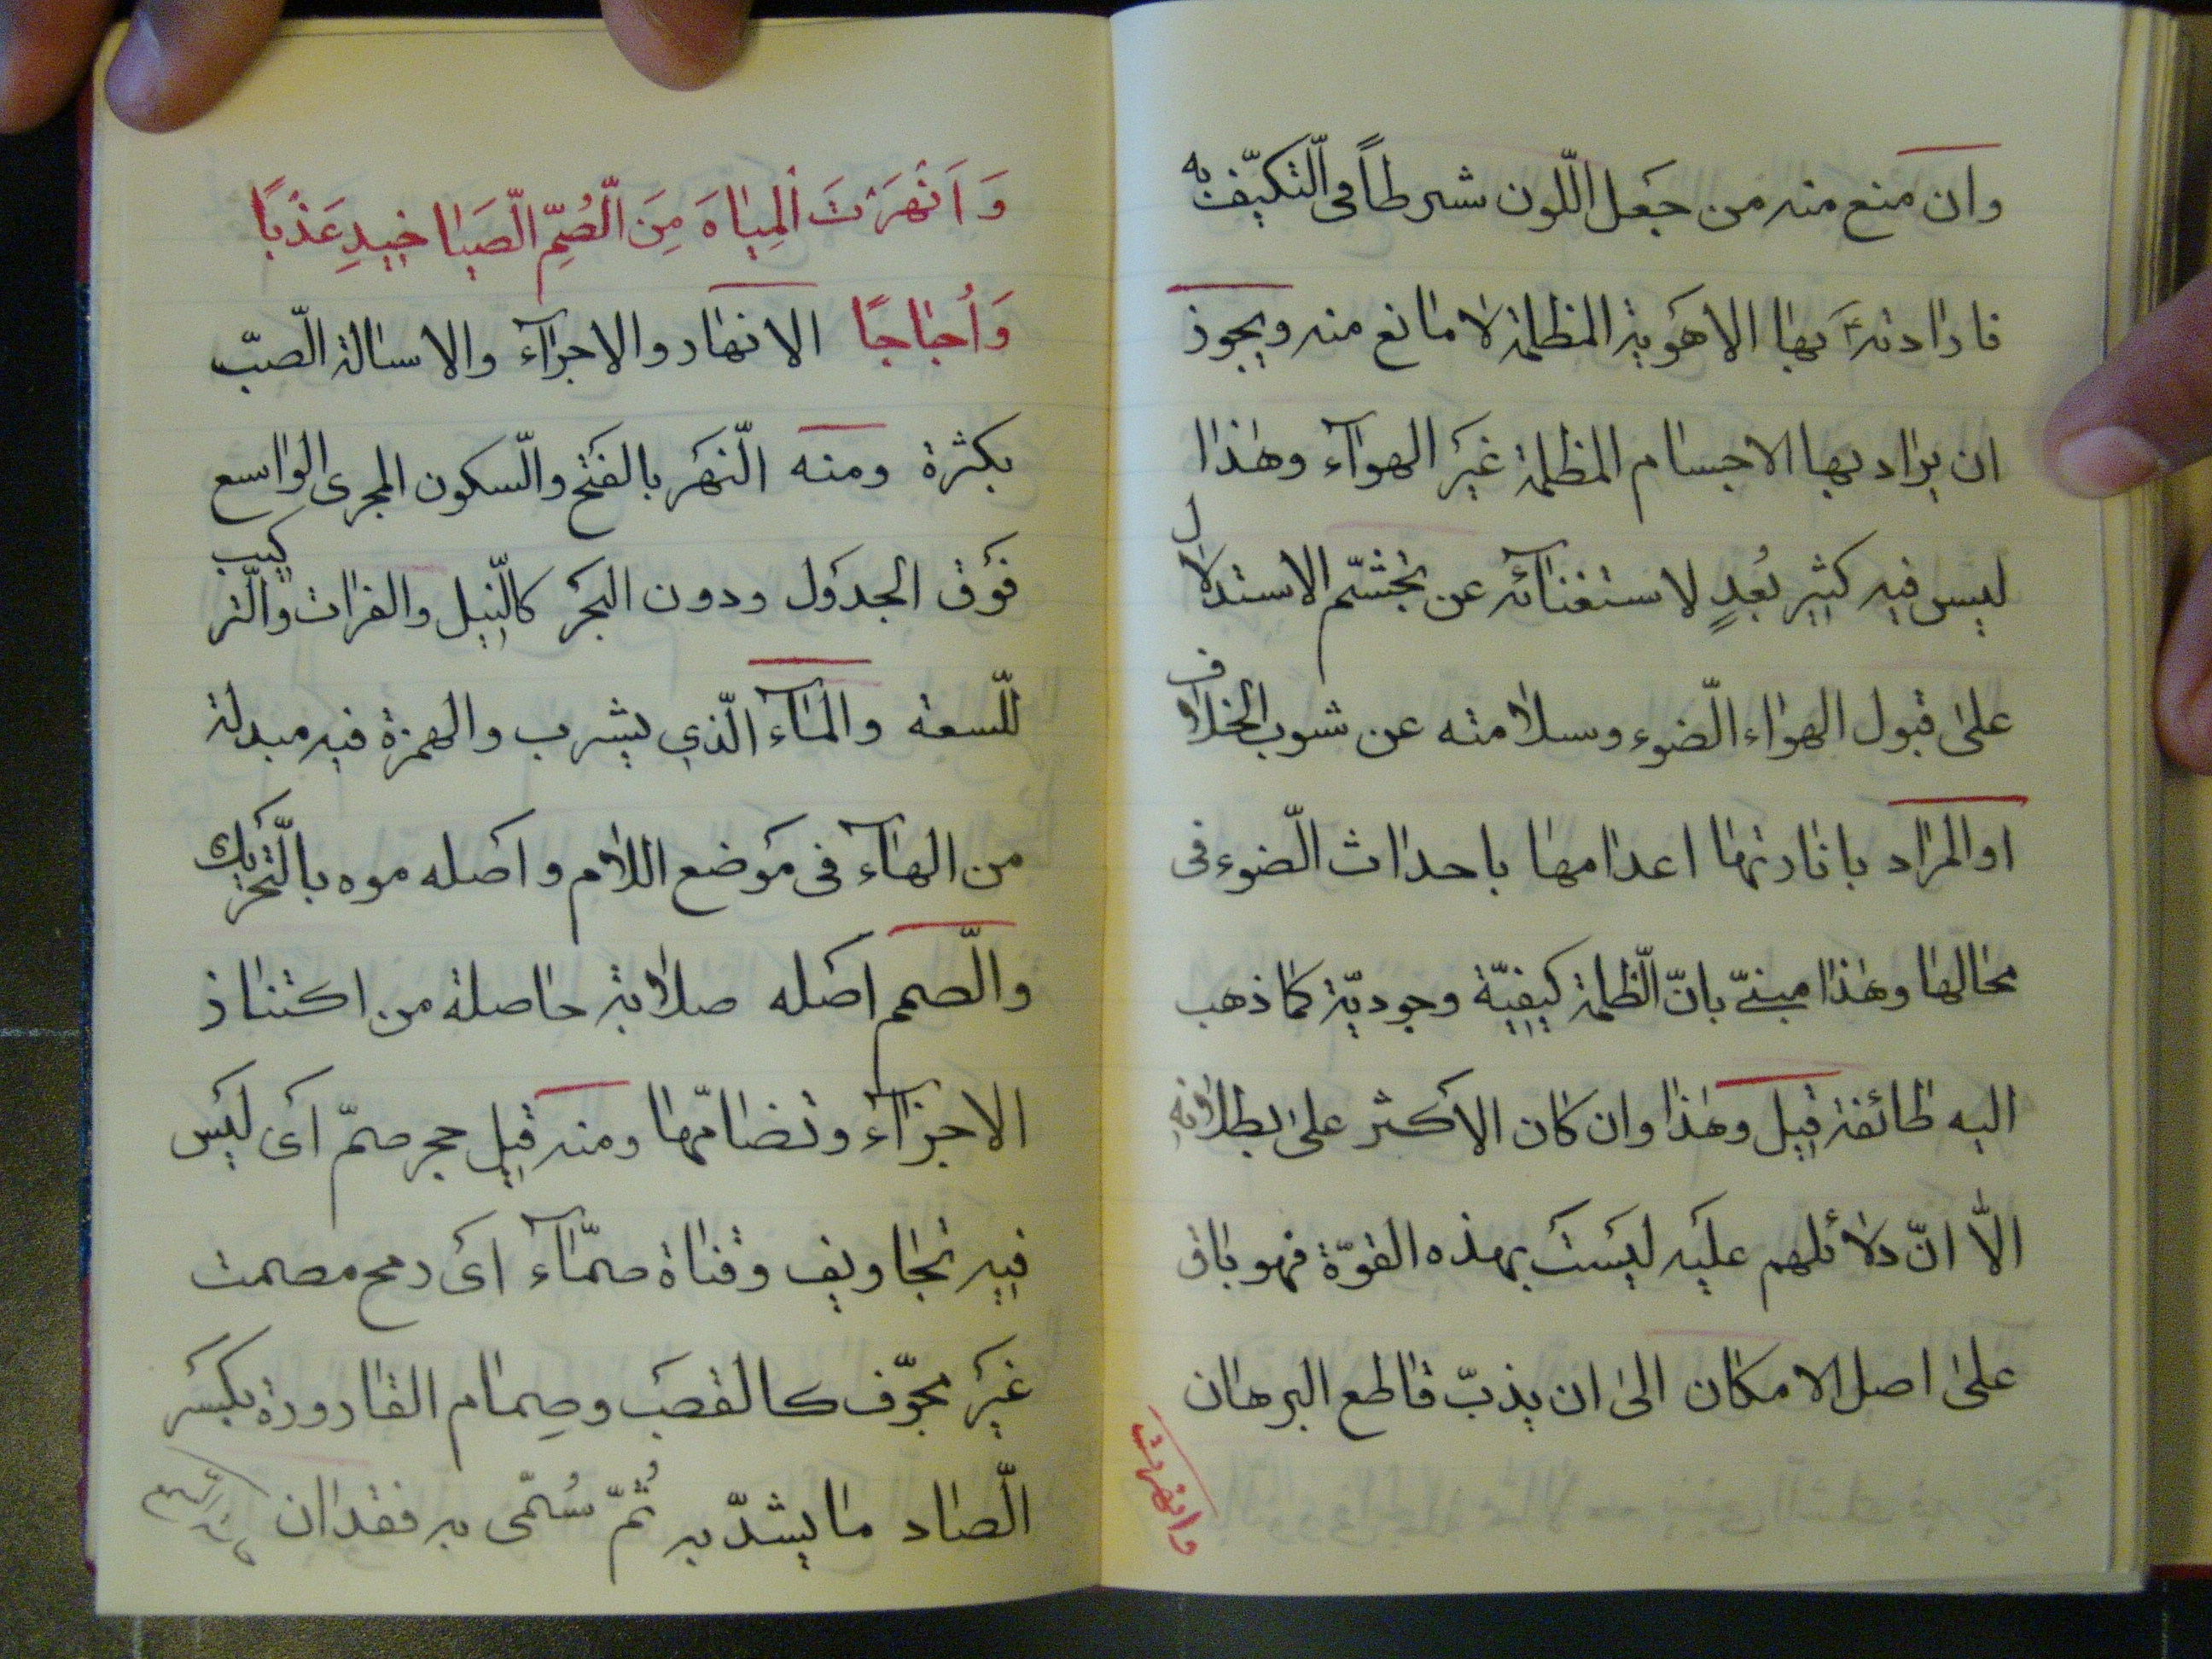 وان منع منه من جعل اللّون شرطاً فى التّكيّف به
فارادته بها الاهَوية المظلمة لا مانع منه ويجوز
ان يراد بها الاجسام المظلمة غيَر الهوآء وهذا
ليس فيه كثير بُعدٍ لاستغنآئه عن تجشّم الاستدلال
على قبول الهواء الضّوء وسلامته عن شوب الخلاف
او المراد بانارتها اعدامها باحداث الضّوء فى
محالها وهذا مبنىّ بانّ الظّلمة كيفيّة وجوديّة كما ذهب
اليه طائفة قيل وهذا وان كان الاكثر على بطلانه
الّا انّ دلائلهم عليَه ليَستَ بهذه القوّة فهو باق
على اصل الامكان الى ان يذبّ قاطع البرهان
وانهرت
وَ اَنْهَرْتَ اْلمِيٰاهَ مِنَ الّصُمِّ الّصَيٰا خيٖدِ عَذْبًا
وَ اُجٰاجًا الانهار والاجرآء والاسالة الصّبّ
بكثرة ومنه النّهَر بالفتَح والسّكون المجرى الواسع
فوَق الجدوَل ودون البحَر كالنّيل والفرات والتّركيب
للّسعة والمآء الّذي يشرب والهمزة فيه مبدلة
من الهآء فى موَضع اللام و اصَله موه بالتّحرَيك
والصّمم اصَله صلابة حاصلة من اكتناز
الاجزآء وتضامّها ومنه قيل حجر صمّ اىَ ليَس
فيه تجاويف وقناة صمّآء اىَ رمح مصمت
غيَر مجوّف كالقصَب وصِمام القارورة بكسَر
الصّاد ما يشدّ به ثُمّ سُمّى به فقدان